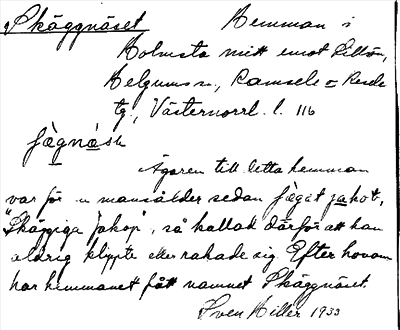 Skäggnäset Hemman i
Holmsta mitt emot Lillön,
Helgums sn, Ramsele o Resele
tg., Västernorrl. l. 116
fæ̀gnásh
Ägaren till detta hemman
var för en mansålder sedan fæ̀gat jakop,
"Skäggige Jakop", så kallad därför att han
aldrig klippte eller rakade sig. Efter honom
har hemmanet fått namnet Skäggnäset.
Sven Hiller 1933